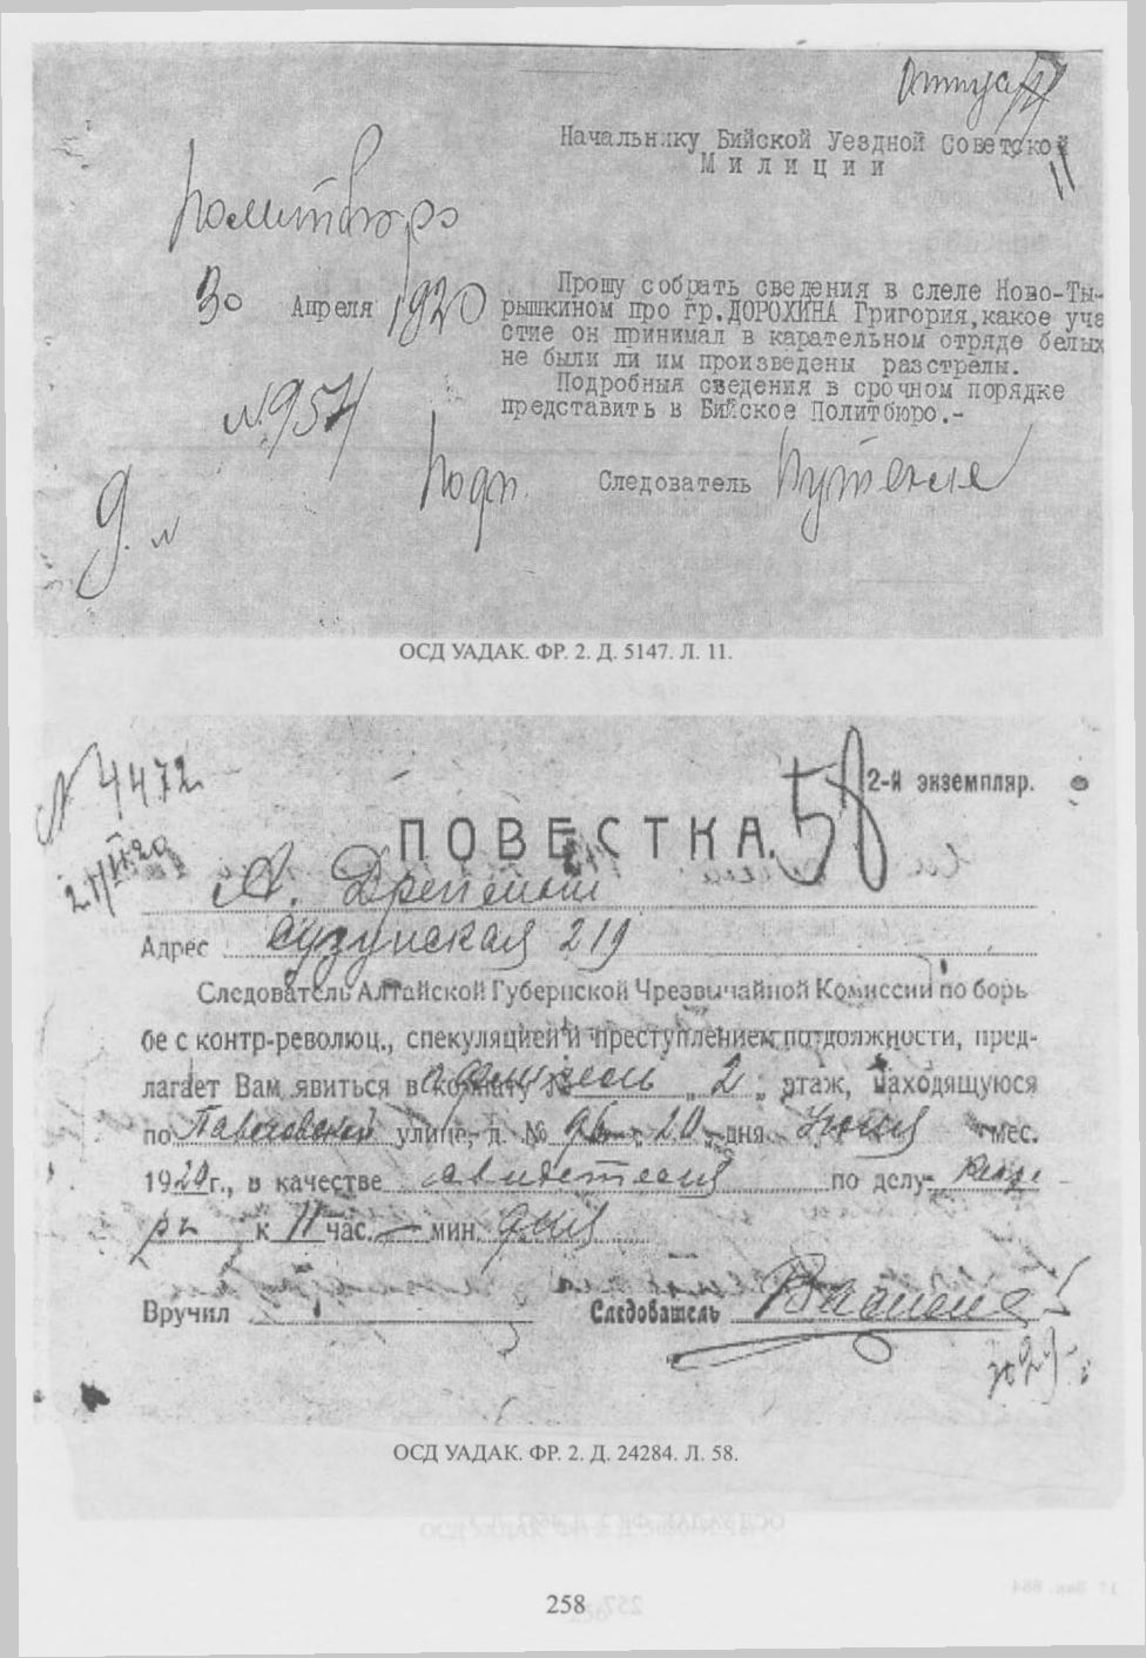 Начальнику Бийской Уездной Советской
Милиции
Политбюро
30 Апреля 1920
Прошу собрать сведения в слеле Ново-Ты-
рышкином про гр.ДОРОХИНА Григория,какое уча
стие он принимал в карательном отряде белых
не были ли им произведены расстрелы.
Подробныя сведения в срочном порядке
представить в Бийское Политбюро.-
№ 954
Подп. Следователь
ОСД УАДАК. ФР. 2. Д. 5147. Л. 11.
№ 4472
58
2-й экземпляр.
ПОВЕСТКА.
А.
Адрес Сузунская 219
Следователь Алтайской Губернской Чрезвычайной Комиссии по борь
бе с контр-революц., спекуляцией и преступлением по должности, пред-
лагает Вам явиться в комнату № 2 этаж, находящуюся
по Павловской улице, д. № 96 20 дня Июня мес.
1920г., в качестве свидетеля по делу
к 11 час. — мин. дня
Вручил Следователь
ОСД УАДАК. ФР. 2. Д. 24284. Л. 58.
258